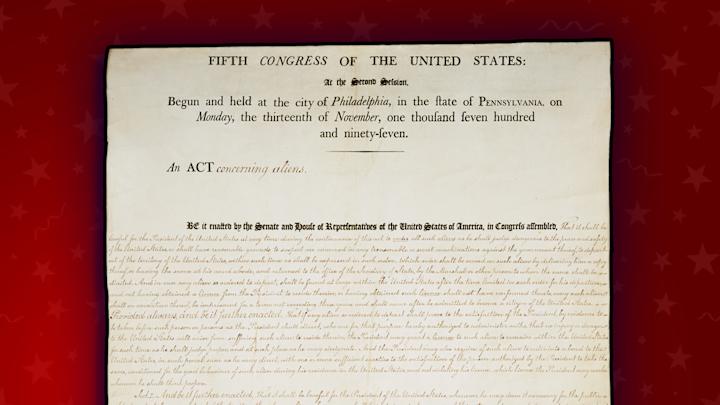 FIFTH CONGRESS OF THE UNITED STATES:
At the Second Session,
Begun and held at the city of Philadelphia, in the ſtate of PENNSYLVANIA, on
Monday, the thirteenth of November, one thouſand ſeven hundred
and ninety-ſeven.
An ACT concerning aliens.
BE it enacted by the Senate and House of Representatives of the United States of America, in Congress assembled, That it shall be
lawful for the President of the United States at any time during the continuance of this act, to order all such aliens as he shall judge dangerous to the peace and safety
of the United States, or shall have reasonable grounds to suspect are concerned in any treasonable or secret machinations against the government thereof, to depart
out of the territory of the United States, within such time as shall be expressed in such order, which order shall be served on such alien by delivering him a copy
thereof or leaving the same at his usual abode, and returned to the office of the Secretary of State, by the Marshal or other person to whom the same shall be
directed. And in case any alien so ordered to depart, shall be found at large within the United States after the time limited in such order for his departure,
and not having obtained a license from the President to reside therein, or having obtained such license shall not have conformed thereto, every such alien
shall on conviction thereof, be imprisoned for a term not exceeding three years and shall never after be admitted to become a citizen of the United States.
Provided always, and be it further enacted, That if any alien so ordered to depart shall prove to the satisfaction of the President, by evidence to
be taken before such person or persons as the President shall direct, who are for that purpose hereby authorized to administer oaths, that no injury or danger
to the United States will arise from suffering such alien to reside therein, the President may grant a license to such alien to remain within the United States
for such time as he shall judge proper, and at such place as he may designate. And the President may also require of such alien to enter into a bond to the
United States, in such penal sum as he may direct, with one or more sufficient sureties to the satisfaction of the person authorized by the President to take the
same, conditioned for the good behavior of such alien during his residence in the United States, and not violating his license, which license the President may revoke
whenever he shall think proper.
Sect. 2. And be it further enacted, That it shall be lawful for the President of the United States, whenever he may deem it necessary for the public